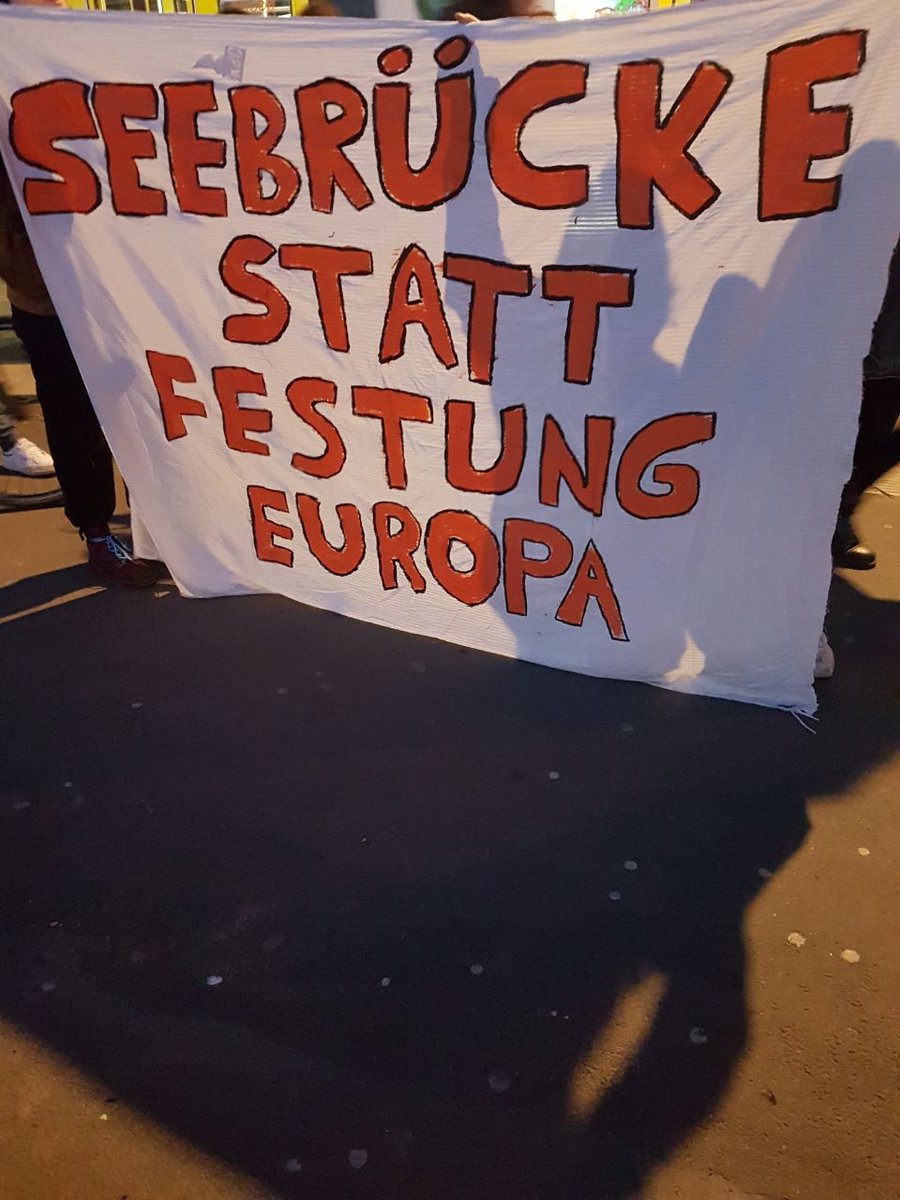 SEEBRÜCKE
STATT
FESTUNG
EUROPA